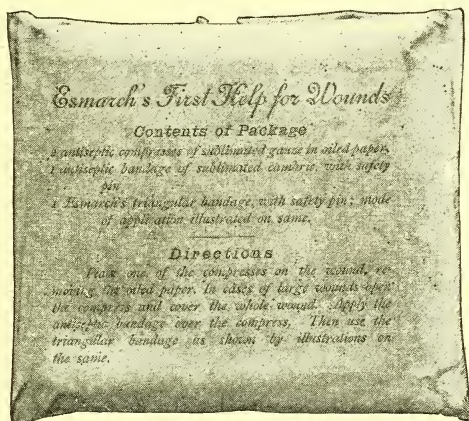 Esmarch's First Help for Wounds
Contents of Package
2 antiseptic compresses of sublimated gauze in oiled paper.
1 antiseptic bandage of sublimated cambric, with safety
pin
1 Esmarch's triangular bandage, with safety pin; mode
of application illustrated on same.
Directions
Place one of the compresses on the wound, re-
moving the oiled paper. In cases of large wounds open
the compress and cover the whole wound. Apply the
antiseptic bandage over the compress. Then use the
triangular bandage as shown by illustrations on
the same.